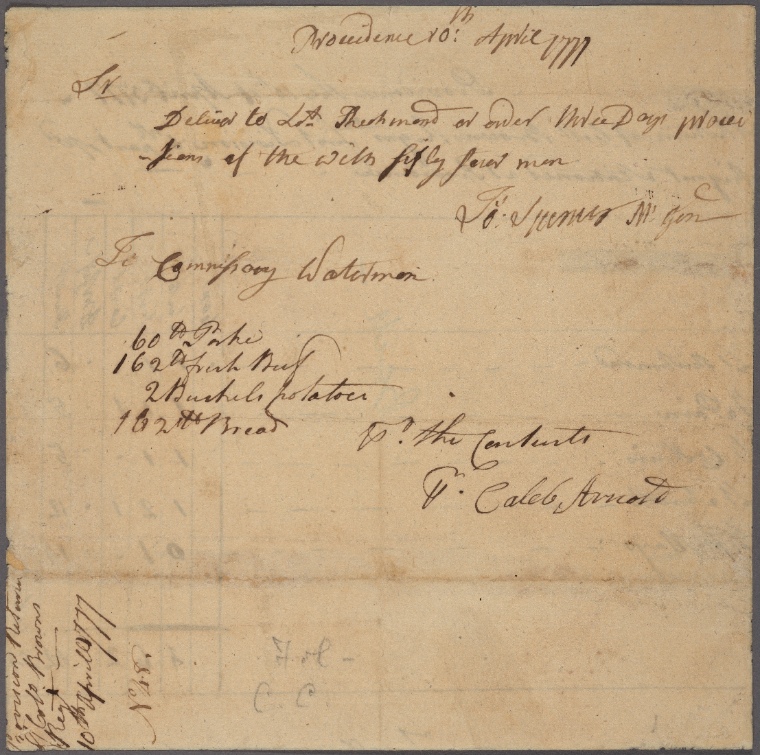 Providence 10:th April 1777
Sr
Deliver to Lot Thechmond or order three Days provi
-sions of the with fifly four men
Jo: Spencer M. Gen
To Commissary Waterman
60 lb Porke
162 lb fresh Beef
2 Bushels potatoes
162 lb Bread
the Contents
Caleb Arnold
Provision Return
Browns
Regt
10th April 1777